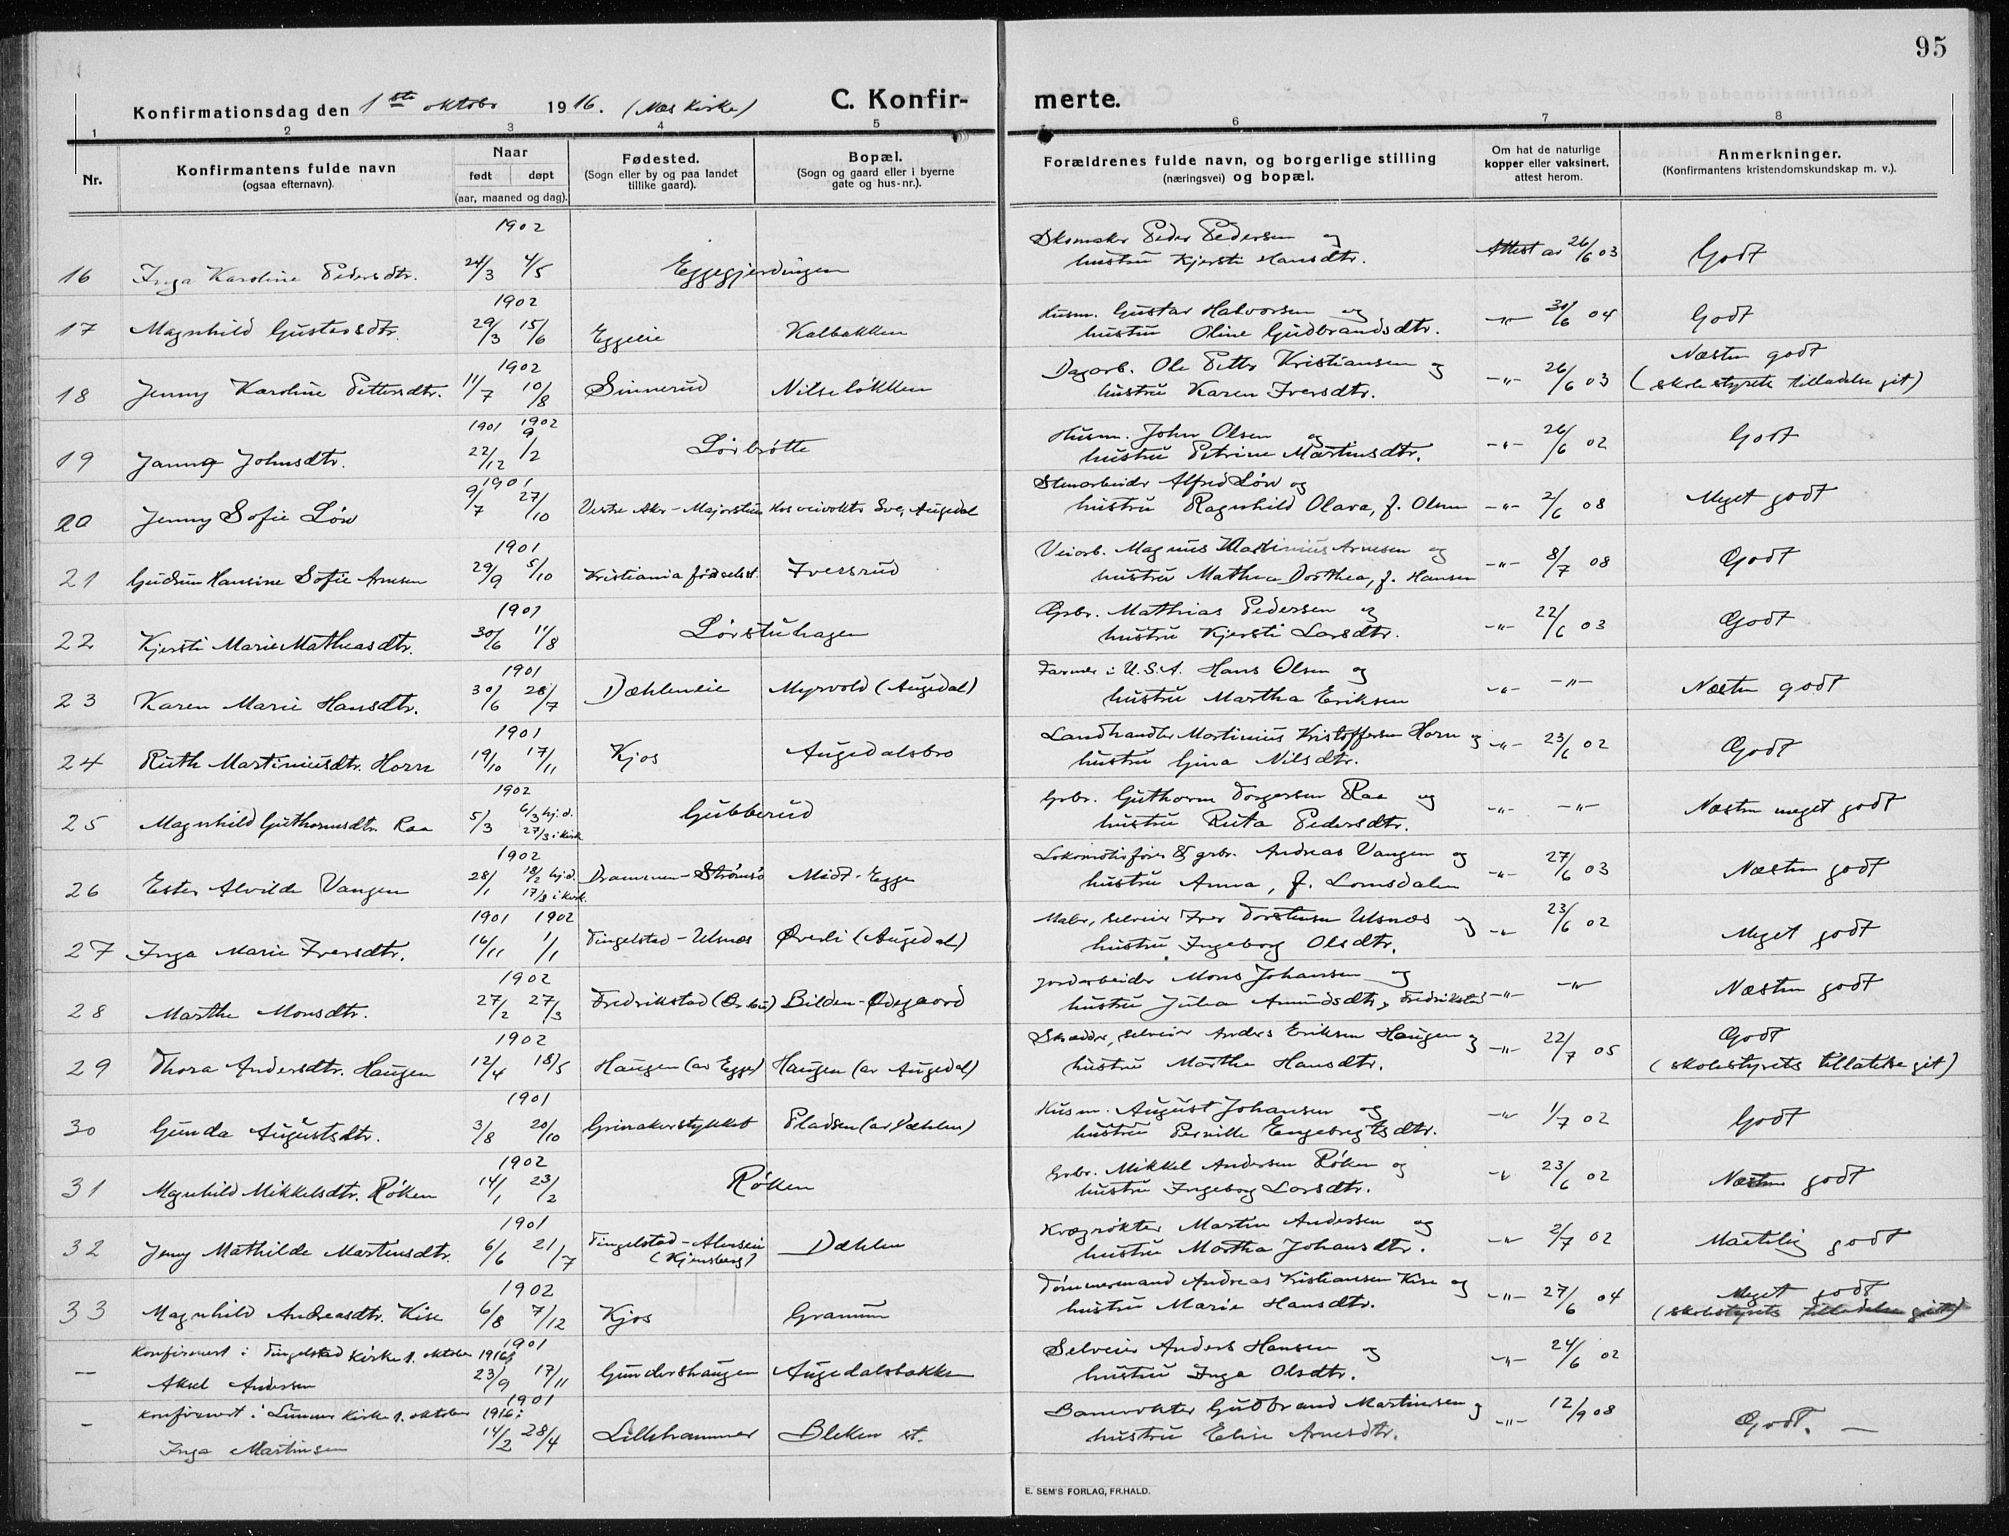 95
Konfirmationsdag den 1ste oktober 1916. (Næs Kirke) C. Konfirmerte.
1 2 3 4 5 6 7 8
Nr. Konfirmantens fulde navn (ogsaa efternavn). Naar født døpt (aar, maaned og dag). Fødested. (Sogn eller by og paa landet tillike gaard). Bopæl. (Sogn og gaard eller i byerne gate og hus-nr.). Forældrenes fulde navn, og borgerlige stilling (næringsvei) og bopæl. Om hat de naturlige kopper eller vaksinert, attest herom. Anmerkninger. (Konfirmantens kristendomskundskap m. v.).
1902
16 Inga Karoline Pedersdtr. 24/3 4/5 Eggegjerdingen Skomaker Peder Pedersen og hustru Kjersti Hansdtr. Attest av 26/6 03 Godt
1902
17 Magnhild Gustavsdtr. 29/3 15/6 Eggeeie Kalbakken Husm. Gustav Halvorsen og hustru Oline Gudbrandsdtr. -"- 30/6 04 Godt
1902
18 Jenny Karoline Pettersdtr. 11/7 10/8 Sinnerud Nilseløkken Dagarb. Ole Petter Kristiansen og hustru Karen Iversdtr. -"- 26/6 03 Næsten godt (skolestyrets tilladelse git)
1901 1902
19 Janna Johnsdtr. 22/12 9/2 Lørbrøtte Husm. John Olsen og hustru Petrine Martinsdtr. -"- 26/6 02 Godt
1901
20 Jenny Sofie Løv 9/7 27/10 Vestre Aker - Majorstuen Hos veivokter Sve, Augedal Stenarbeider Alfred Løv og hustru Ragnhild Olava, f. Olsen -"- 2/6 08 Meget godt
1901
21 Gudrun Hansine Sofie Arnesen 29/9 5/10 Kristiania fødselsst. Iversrud Veiarb. Magnus Martinius Arnesen og hustru Mathea Dorthea, f. Hansen -"- 8/7 08 Godt
1901
22 Kjersti Marie Mathiasdtr. 30/6 11/8 Lørstuhagen Grbr. Mathias Pedersen og hustru Kjersti Larsdtr. -"- 22/6 03 Godt
1901
23 Karen Marie Hansdtr. 30/6 28/7 Dæhleneie Myrvold (Augedal) Farmer i U.S.A. Hans Olsen og hustru Martha Eriksen -"- -"- Næsten godt
1901
24 Ruth Martiniusdtr. Horn 19/10 17/11 Kjos Augedalsbro Landhandler Martinius Kristoffersen Horn og hustru Gina Nilsdtr. -"- 23/6 02 Godt
1902
25 Magnhild Guthormsdtr. Raa 5/3 6/3 hj. d. 27/3 i kirk. Gubberud Grbr. Guthorm Torgersen Raa og hustru Ruta Pedersdtr. -"- -"- Næsten meget godt
1902
26 Ester Alvilde Vangen 28/1 18/2 hj.d. 17/8 i kirk. Drammen - Strømsø Midt-Egge Lokomotivfører & grbr. Andreas Vangen og hustru Anna, f. Lomsdalen -"- 27/6 03 Næsten godt
1901 1902
27 Inga Marie Iversdtr. 16/11 1/1 Tingelstad - Ulsnæs Øverli (Augedal) Maler, selveier Iver Torstensen Ulsnæs og hustru Ingeborg Olsdtr. -"- 23/6 02 Meget godt
1902
28 Marthe Monsdtr. 27/2 27/3 Fredrikstad Bilden-Ødegaard Jordarbeider Mons Johansen og hustru Julia Amundsdtr., Fredrikstad -"- -"- Næsten godt
1902
29 Thora Andersdtr. Haugen 12/4 18/5 Haugen (av Egge) Haugen (av Augedal) Skrædder, selveier Anders Eriksen Haugen og hustru Marthe Hansdtr. -"- 22/7 05 Godt (skolestyrets tillatelse git)
1901
30 Gunda Augustsdtr. 3/8 20/10 Grinakerstykket Pladsen (av Dæhlen) Husm. August Johansen og hustru Pernille Engebregtsdtr. -"- 1/7 02 Godt
1902
31 Magnhild Mikkelsdtr. Røken 14/1 23/2 Røken Grbr. Mikkel Andersen Røken og hustru Ingeborg Larsdtr. -"- 23/6 02 Næsten godt
1901
32 Jenny Mathilde Martinsdtr. 6/6 21/7 Tingelstad - Almseie (Kjensberg) Dæhlen Krægrøkter Martin Andersen og hustru Martha Johansdtr. -"- 2/7 02 Maatelig godt
1902
33 Magnhild Andreasdtr. Kise 6/8 7/12 Kjos Granum Tømmermand Andreas Kristiansen Kise og hustru Marie Hansdtr. -"- 27/6 04 Meget godt (skolestyrets tilladelse git)
Konfirmert i Tingelstad Kirke 1. oktober 1916: 1901
— Aksel Andersen 23/9 17/11 Gundershaugen Augedalsbakken Selveier Anders Hansen og hustru Inga Olsdtr. -"- 24/6 02
Konfirmert i Lunner Kirke 1. oktober 1916: 1901
- Inga Martinsen 14/2 28/4 Lillehammer Bleken st. Banevokter Gudbrand Martinsen og hustru Elise Arnesdtr. -"- 12/9 08 Godt. —
E. SEM'S FORLAG, FR.HALD.